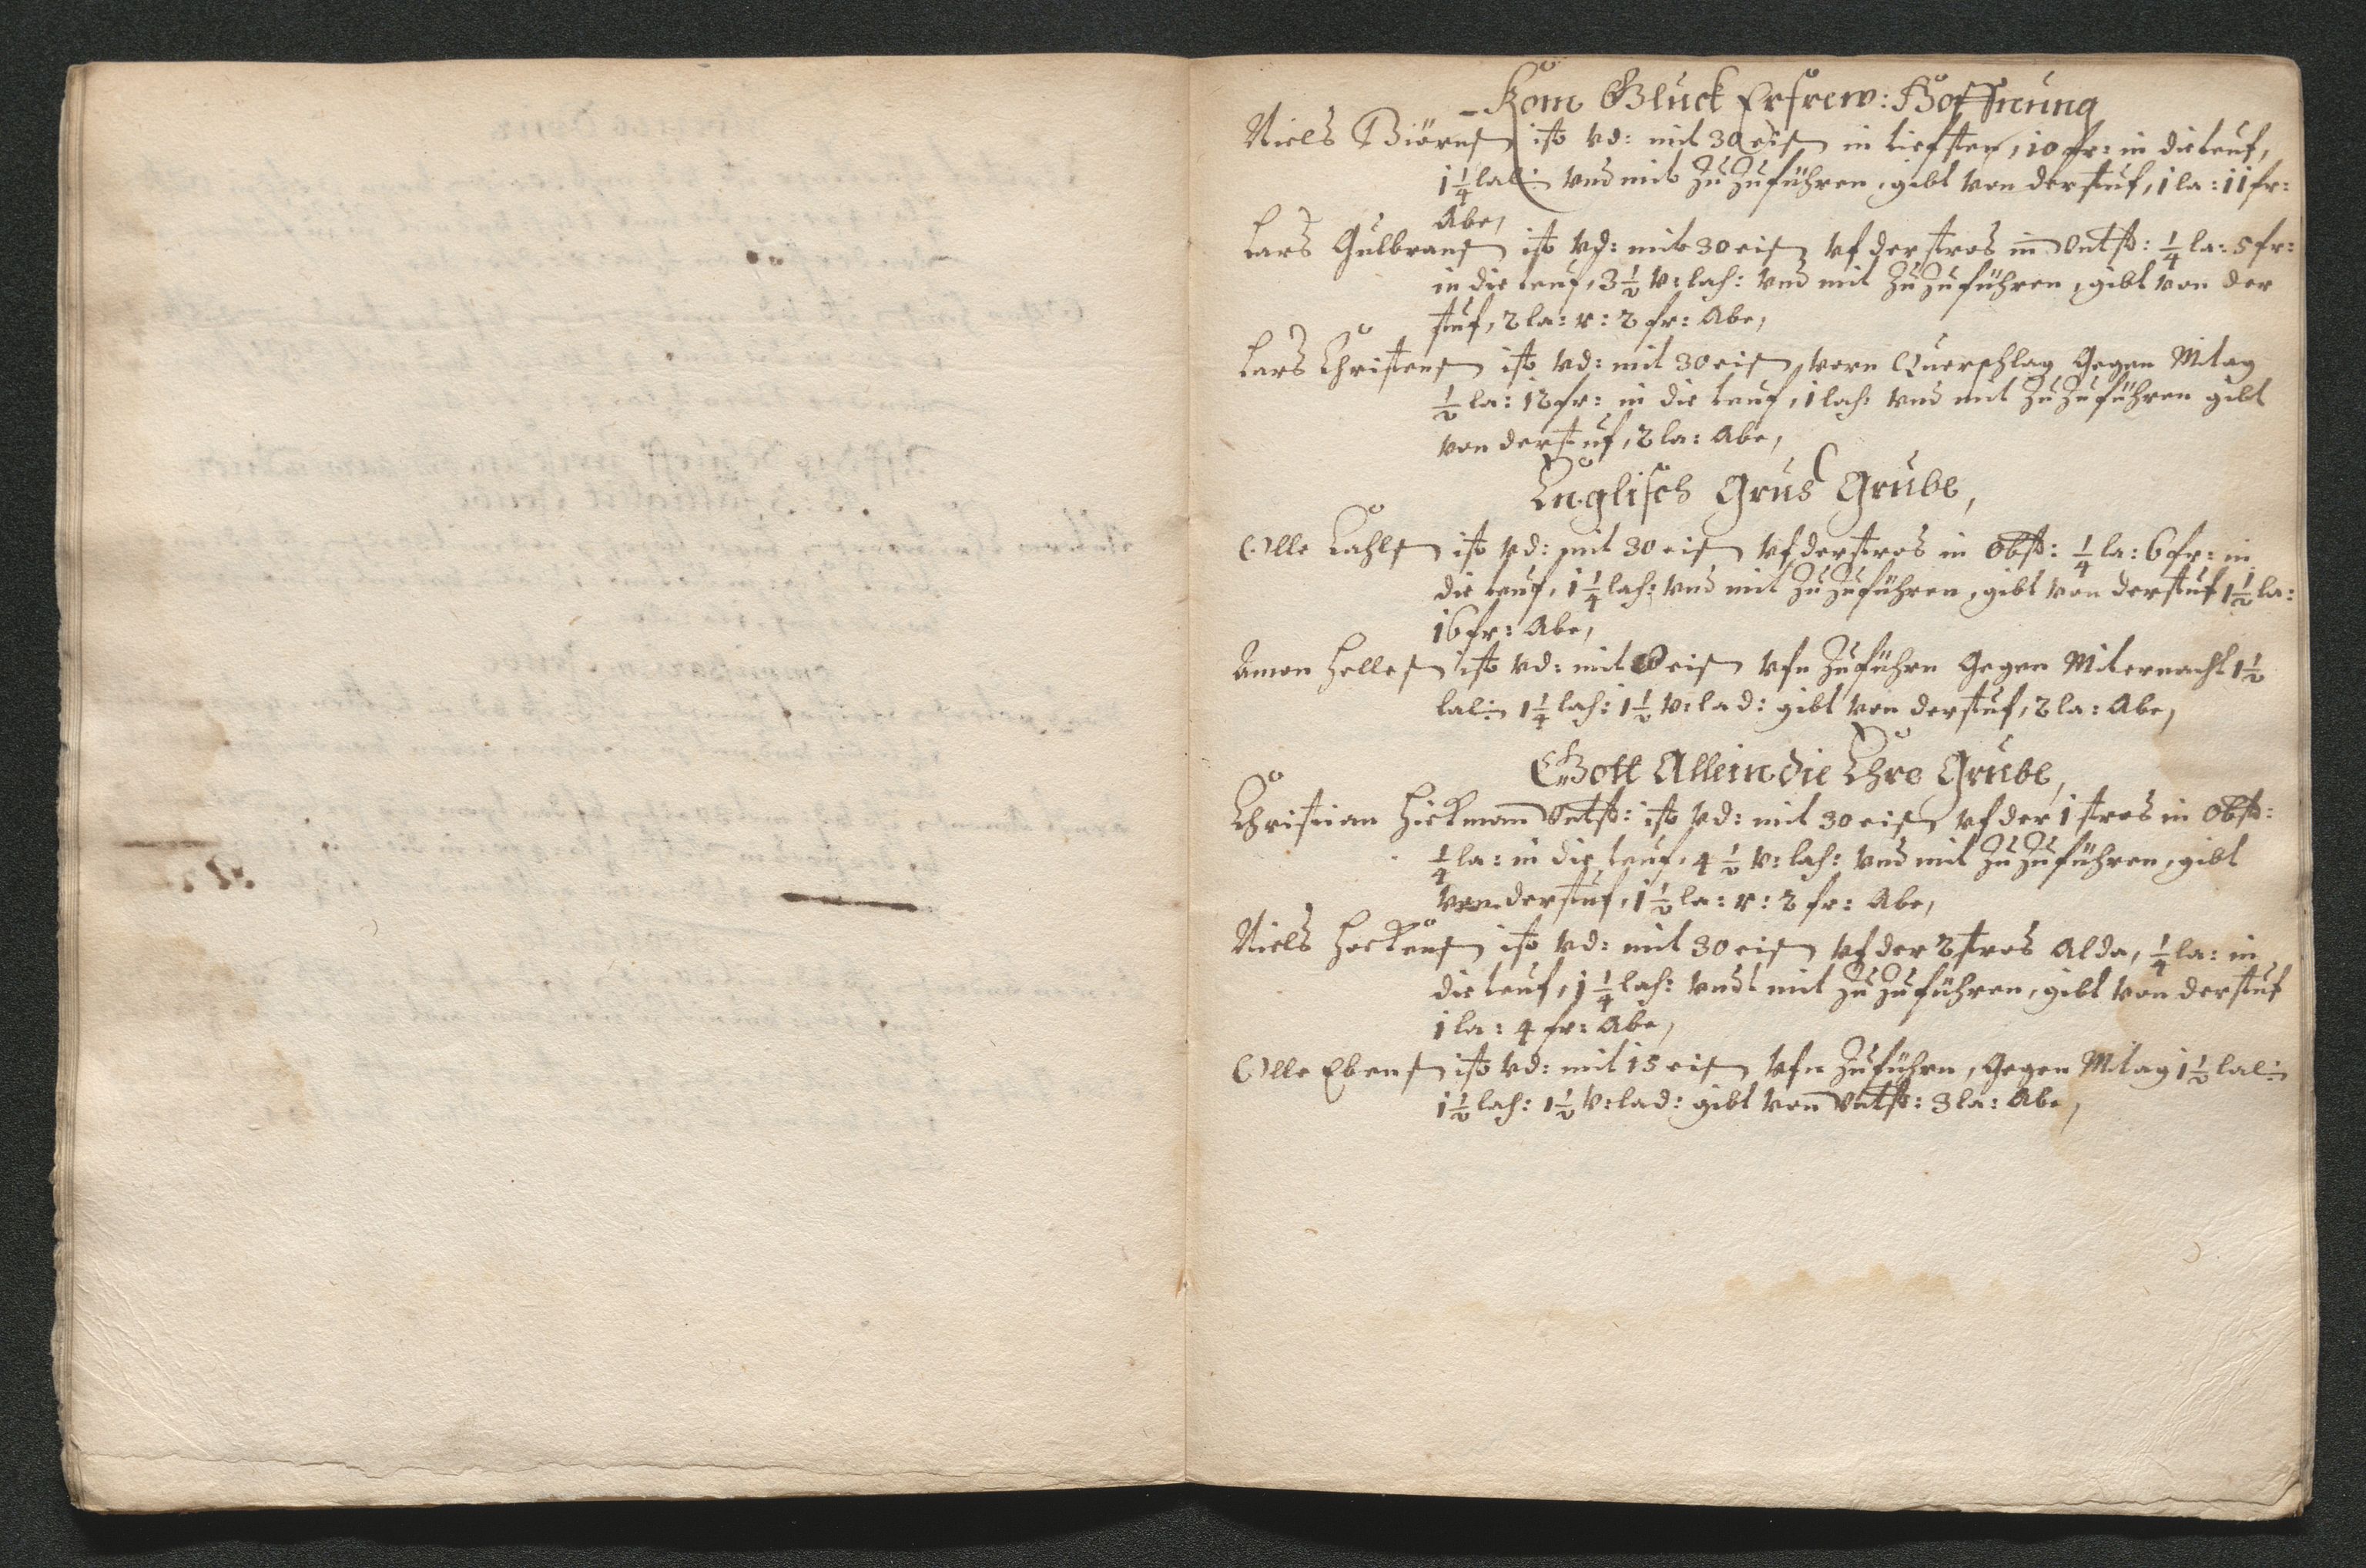 Kom Gluck Erfrew: Hoffnung
Niels Biörnsen ist vd: mit 30 eisen in tiefsten, 10 fr: in die teuf,
1 1/4 lal: vnd mit Zu Zu führen, gibt von der stuf, 1 la: 11 fr:
Abe,
Lars Gulbransen ist vd: mit 30 eisen vf der stros in Ontst: 1/4 la: 5 fr:
in die teuf, 3 1/2 v: lach: vnd mit Zu Zu führen, gibt von der
stuf, 2 la: r: 2 fr: Abe,
Lars Christensen ist vd: mit 30 eisen, vorn Querschlag Gegen Mitag
1/2 la: 12 fr: in die teuf, 1 lach: vnd mit Zu Zu führen gibt
von der stuf, 2 la: Abe,
Englisch Grus Grube,
Olle Lahlsen ist vd: mit 30 eisen vf der stros in Obst: 1/4 la: 6 fr: in
die teuf, 1 1/4 lach: vnd mit Zu Zu führen, gibt von der stuf 1 1/2 la:
16 fr: Abe,
Amon Hellesen ist vd: mit eisen vfn Zuführn Gegen Miternacht 1 1/2
lal: 1 1/4 lach: 1 1/2 v: lad: gibt von der stuf, 2 la: Abe,
Gott Allein die Ehre Grube,
Christian Hickman Ontst: ist vd: mit 30 eisen vf der 1 stros in Obst:
1/4 la: in die teuf, 4 1/2 v: lach: vnd mit Zu Zu führen, gibt
von der stuf, 1 1/2 la: r: 2 fr: Abe,
Niels Hockensen ist vd: mit 30 eisen vf der 2 stros Alda, 1/4 la: in
die teuf, 1 1/4 lach: vndt mit Zu Zu führen, gibt von der stuf
1 la: 4 fr: Abe,
Olle Ebensen ist vd: mit 15 eisen vfn Zuführn, Gegen Mitag 1 1/2 lal:
1 1/2 lach: 1 1/2 v: lad: gibt von Ontst: 3 la: Abe,